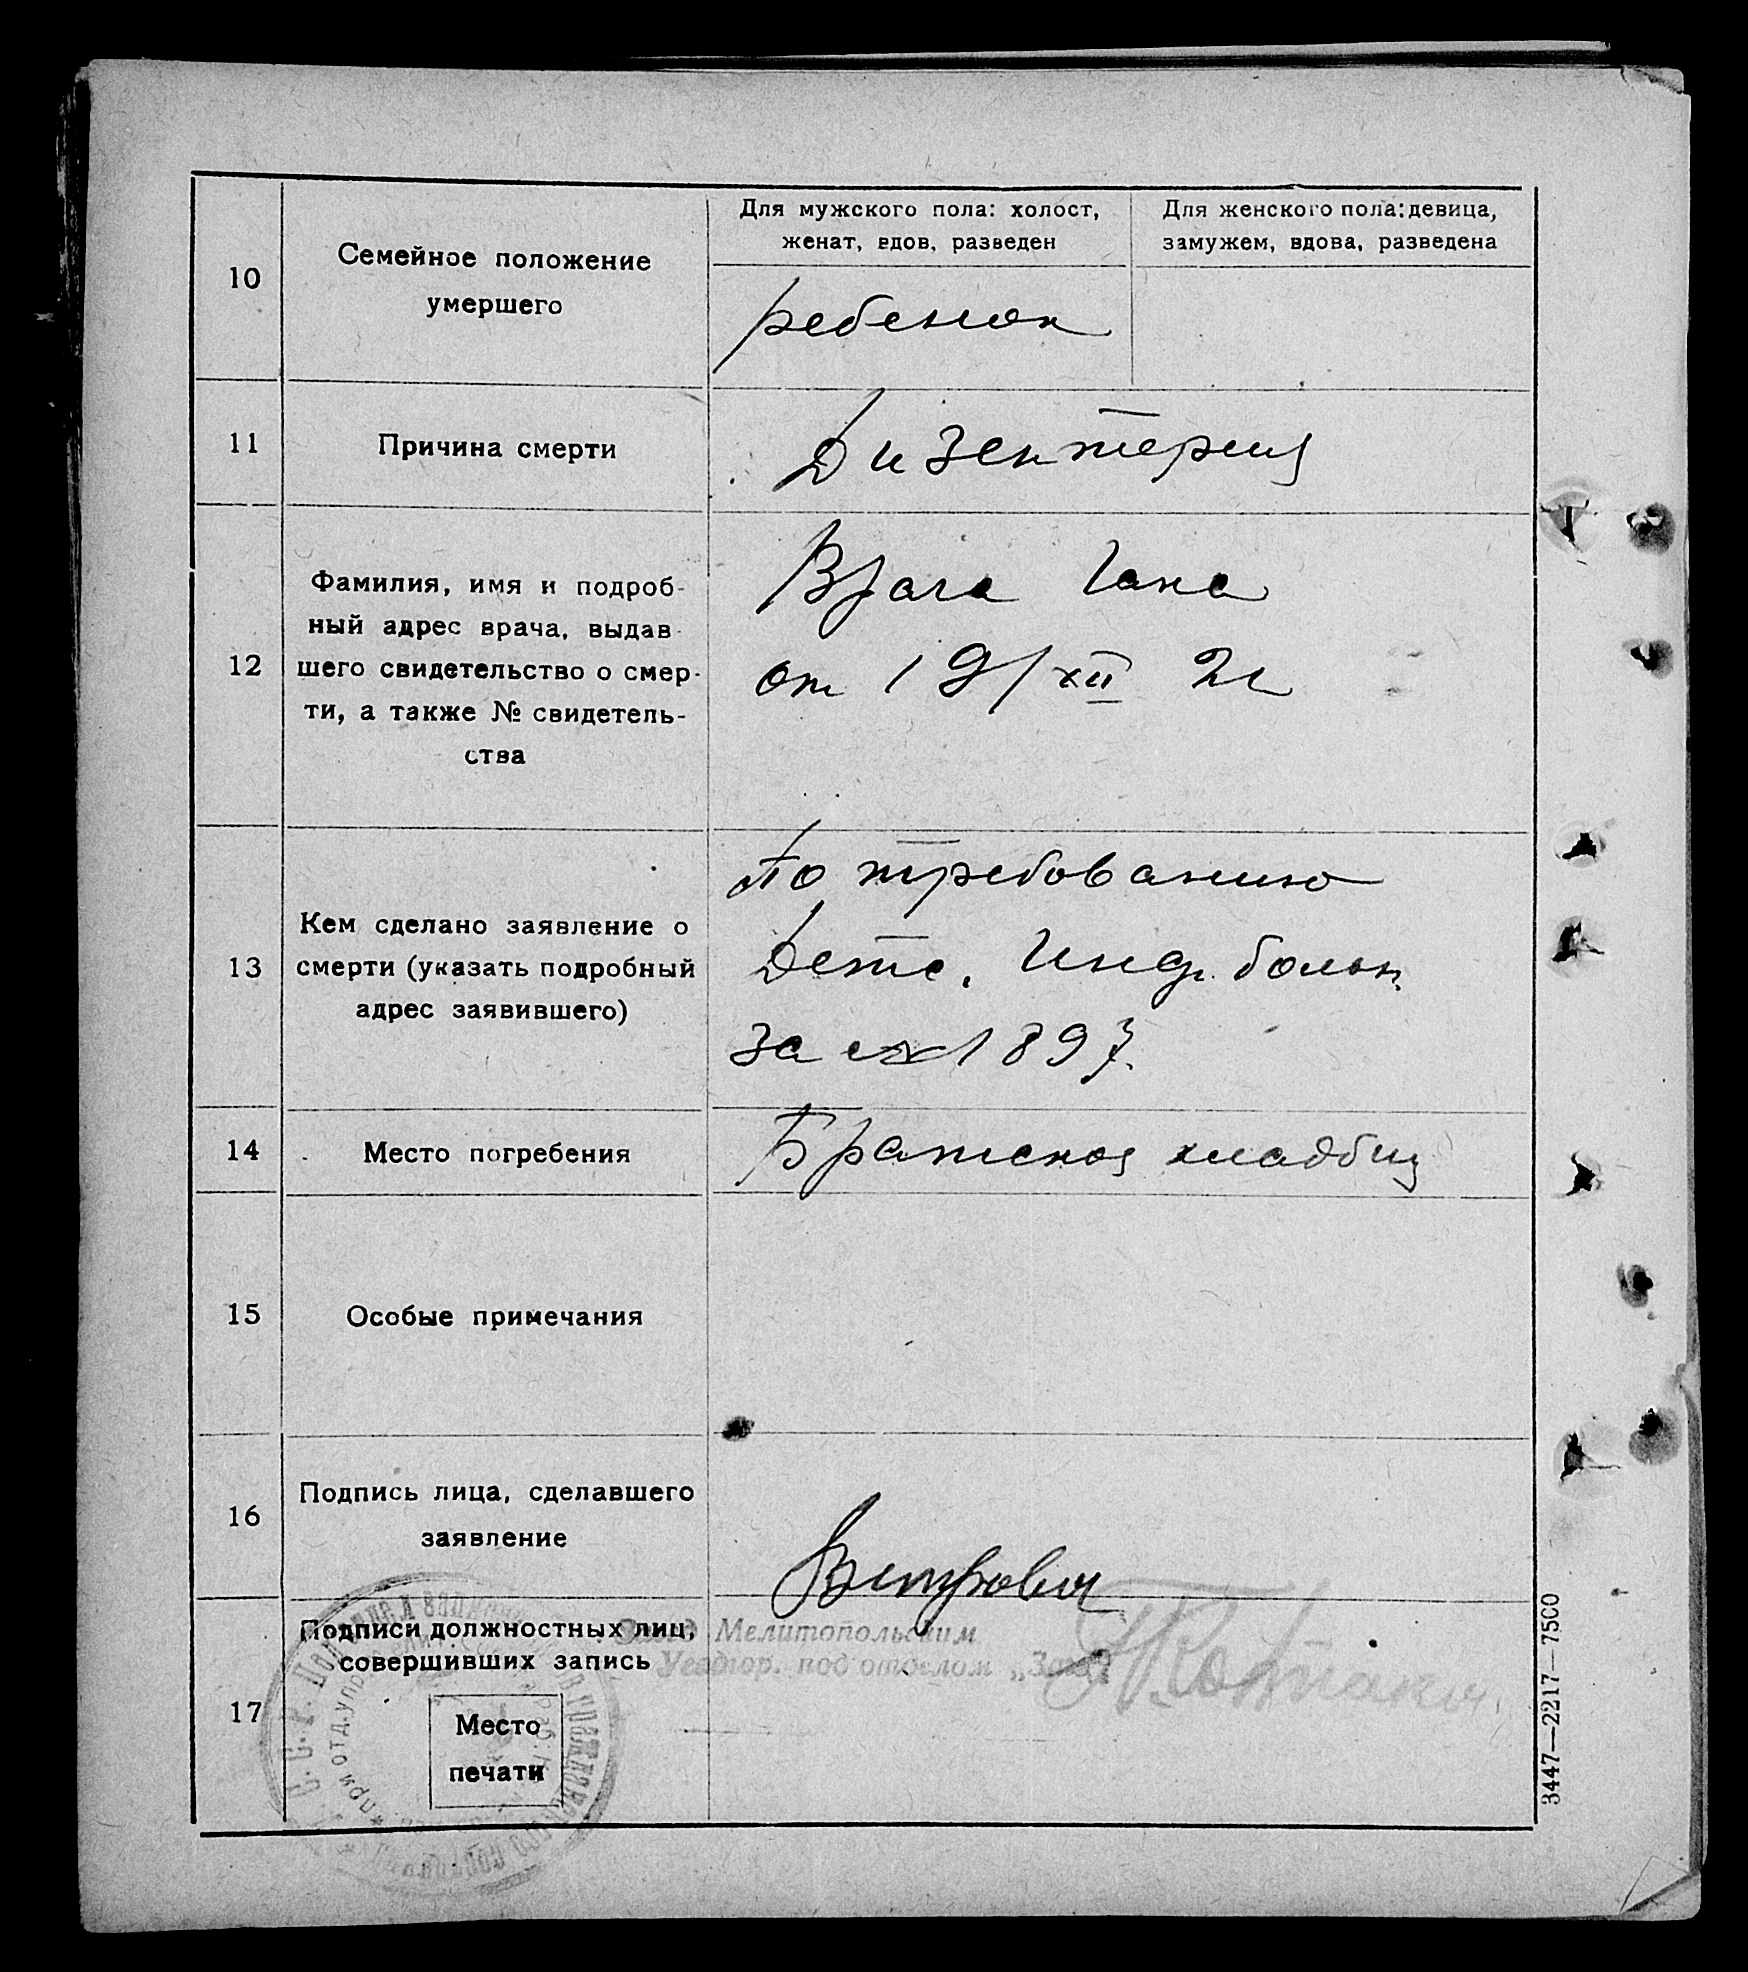 10
Семейное положение
умершего
Для мужского пола: холост,
женат, вдов, разведен
Для женского пола: девица,
замужем, вдова, разведена
ребенок
11
Причина смерти
Дизентерия
12
Фамилия, имя и подроб-
ный адрес врача, выдав-
шего свидетельство о смер-
ти, а также № свидетель-
ства
Врача
от 19/XII 2
13
Кем сделано заявление о
смерти (указать подробный
адрес заявившего)
По требованию
Детс. больн.
за № 1897
14
Место погребения
Братское кладбищ
15
Особые примечания
16
Подпись лица, сделавшего
заявление
17
Подписи должностных лиц,
совершивших запись
Место
печати
Завед. Мелитопольским
Уездгор. под'отделом „Загс“
3447—2217—7500